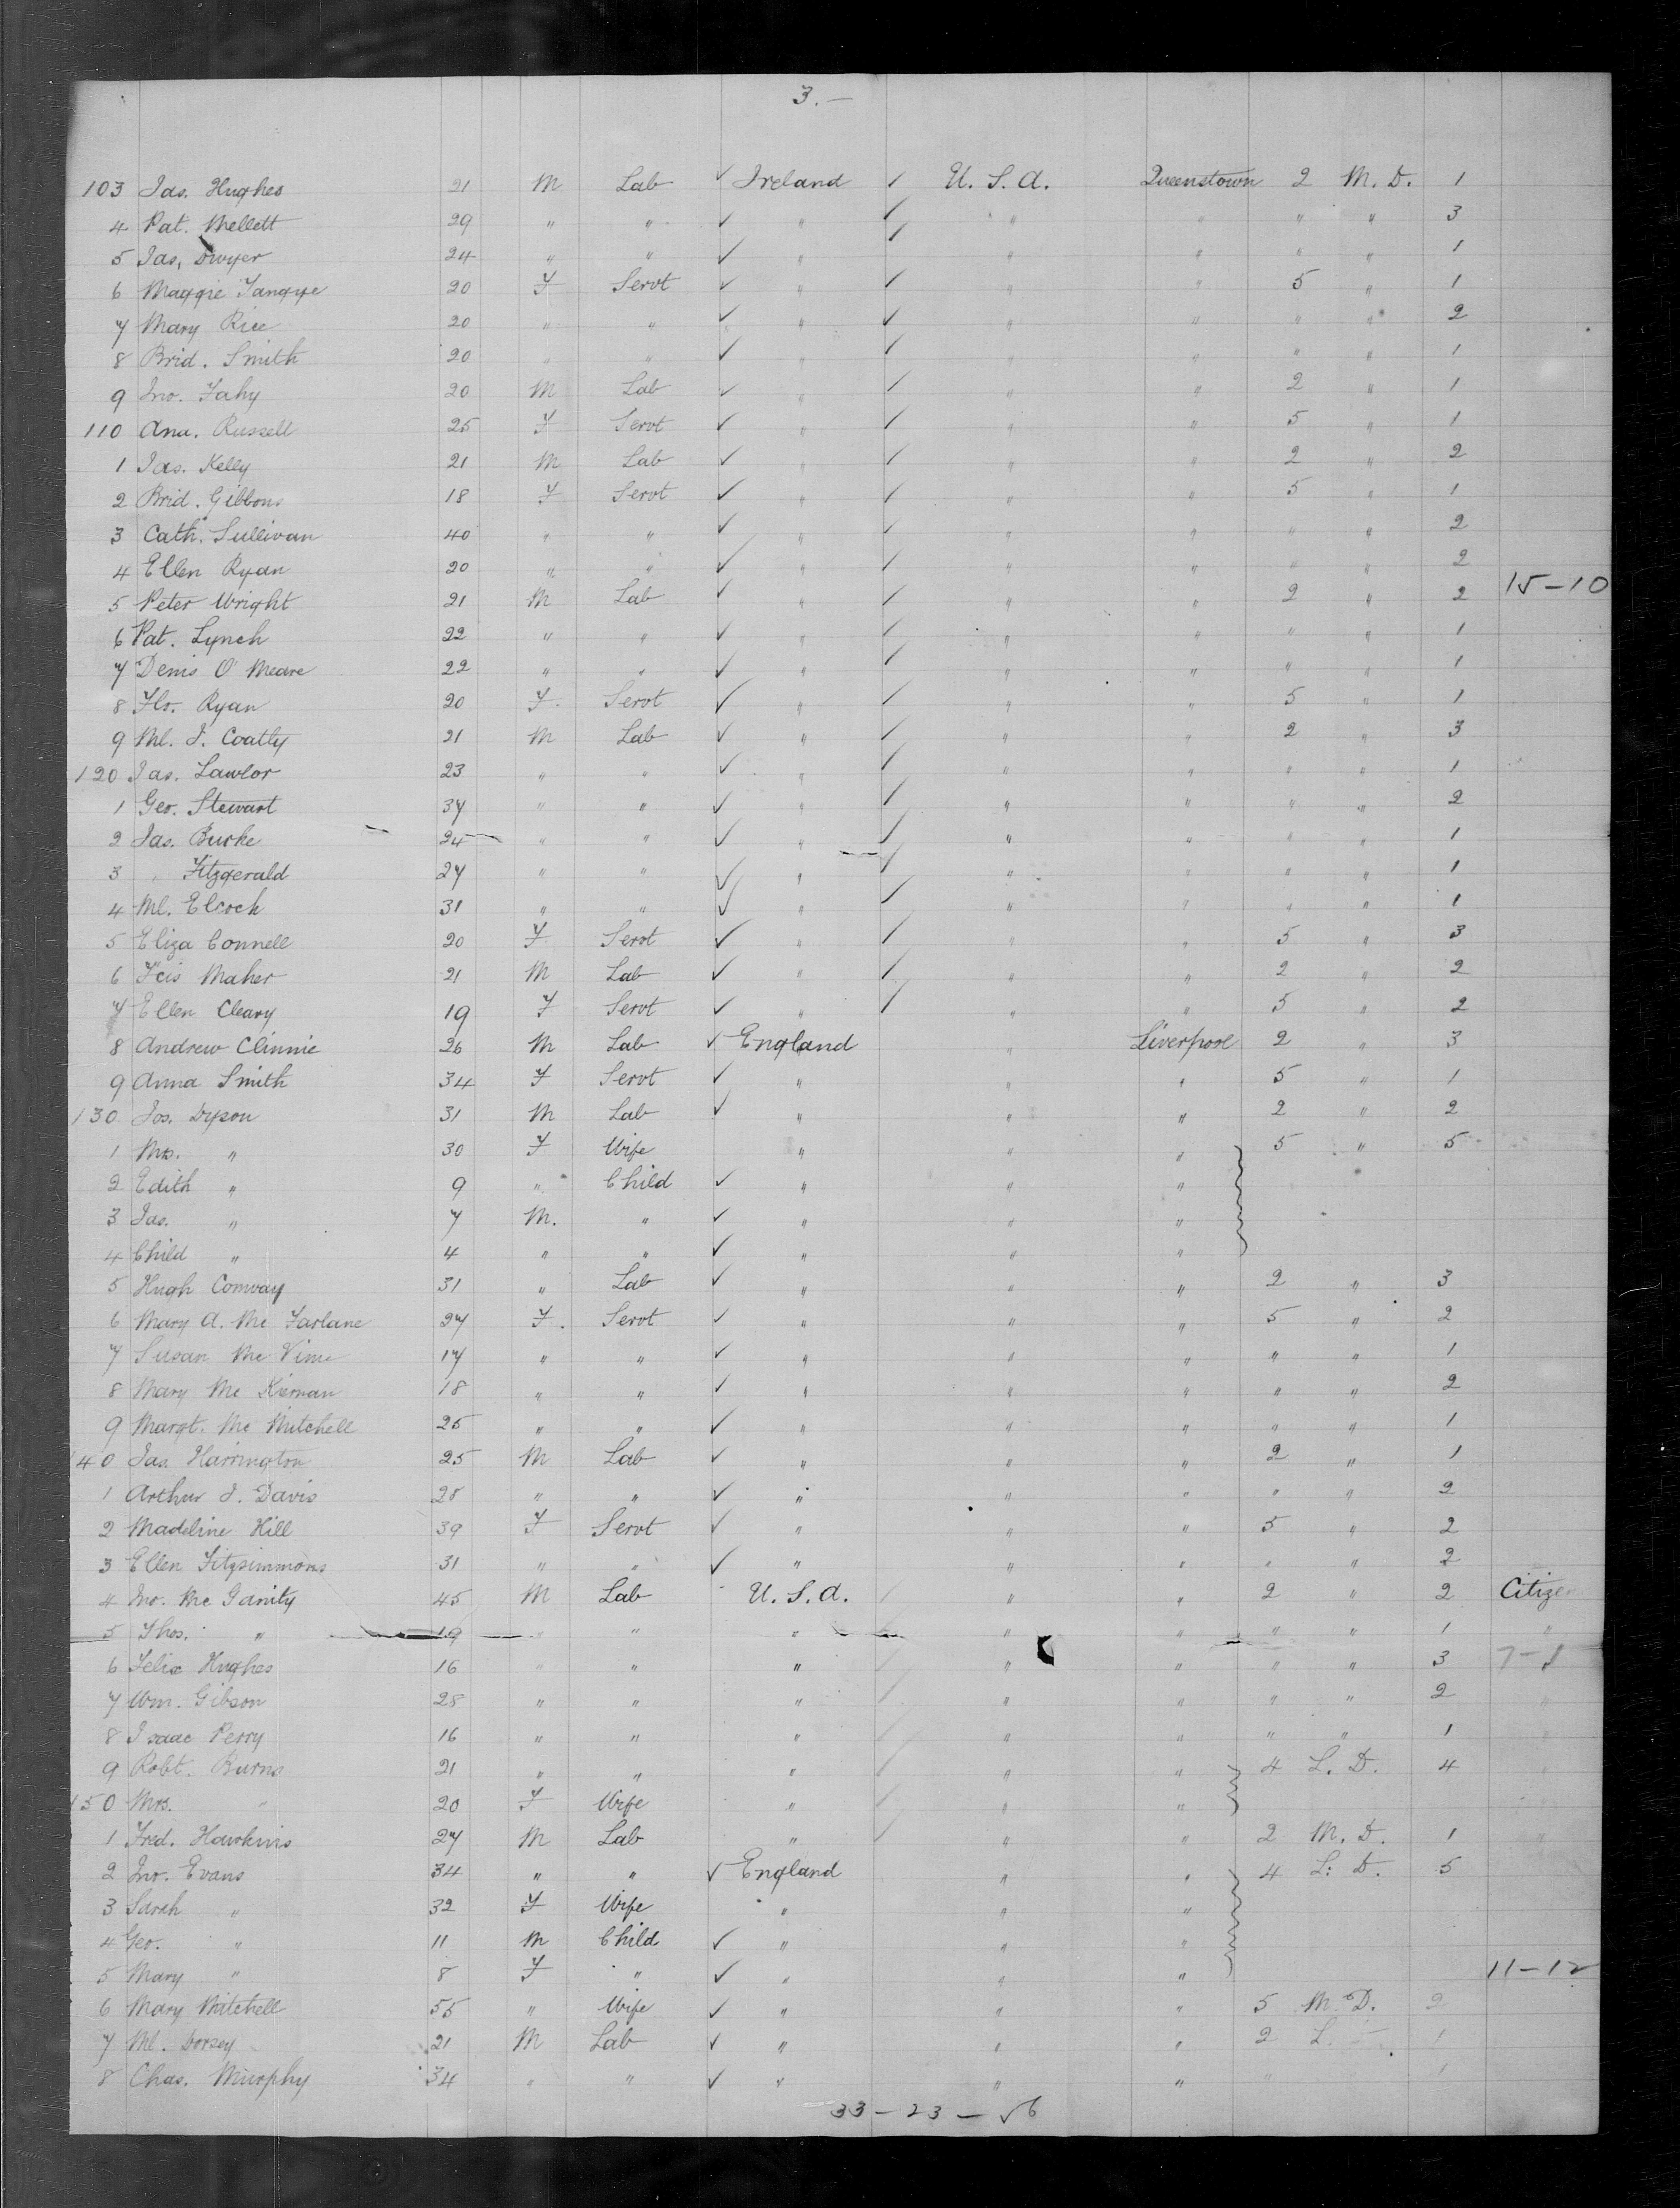 3.—
103 Jas. Hughes 21 M Lab ✓ Ireland ✓ U. S. A. Queenstown 2 M. D. 1
4 Pat. Mellett 29 " " ✓ " ✓ " " " " 3
5 Jas, Dwyer 24 " " ✓ " ✓ " " " " 1
6 Maggie Tangye 20 F Servt ✓ " ✓ " " 5 " 1
7 Mary Rice 20 " " ✓ " ✓ " " " " 2
8 Brid. Smith 20 " " ✓ " ✓ " " " " 1
9 Jno. Fahy 20 M Lab ✓ " ✓ " " 2 " 1
110 Ana. Russell 25 F Servt ✓ " ✓ " " 5 " 1
1 Jas. Kelly 21 M Lab ✓ " ✓ " " 2 " 2
2 Brid. Gibbons 18 F Servt ✓ " ✓ " " 5 " 1
3 Cath. Sullivan 40 " " ✓ " ✓ " " " " 2
4 Ellen Ryan 20 " " ✓ " ✓ " " " " 2
5 Peter Wright 21 M Lab ✓ " ✓ " " 2 " 2 15-10
6 Pat. Lynch 22 " " ✓ " ✓ " " " " 1
7 Denis O'Meare 22 " " ✓ " ✓ " " " " 1
8 Flo. Ryan 20 F. Servt ✓ " ✓ " " 5 " 1
9 Ml. J. Coatly 21 M Lab ✓ " ✓ " " 2 " 3
120 Jas. Lawlor 23 " " ✓ " ✓ " " " " 1
1 Geo. Stewart 37 " " ✓ " ✓ " " " " 2
2 Jas. Burke 24 " " ✓ " ✓ " " " " 1
3 " Fitzgerald 27 " " ✓ " ✓ " " " " 1
4 Ml. Elcock 31 " " ✓ " ✓ " " " " 1
5 Eliza Connell 20 F Servt ✓ " ✓ " " 5 " 3
6 Fcis Maher 21 M Lab ✓ " ✓ " " 2 " 2
7 Ellen Cleary 19 F Servt ✓ " ✓ " " 5 " 2
8 Andrew Clinnie 26 M Lab ✓ England " Liverpool 2 " 3
9 Anna Smith 34 F Servt ✓ " " " 5 " 1
130 Jos. Dyson 31 M Lab ✓ " " " 2 " 2
1 Mrs. " 30 F Wife " " " 5 " 5
2 Edith " 9 " Child ✓ " " "
3 Jas. " 7 M. " ✓ " " "
4 Child " 4 " " ✓ " " "
5 Hugh Conway 31 " Lab ✓ " " " 2 " 3
6 Mary A. Mc Farlane 27 F. Servt ✓ " " " 5 " 2
7 Susan Mc Vime 17 " " ✓ " " " " " 1
8 Mary Mc Kiernan 18 " " ✓ " " " " " 2
9 Margt. Mc Mitchell 25 " " ✓ " " " " " 1
140 Jas. Harrington 25 M Lab ✓ " " " 2 " 1
1 Arthur J. Davis 28 " " ✓ " " " " " 2
2 Madeline Hill 39 F Servt ✓ " " " 5 " 2
3 Ellen Fitzsimmons 31 " " ✓ " " " " " 2
4 Jno. Mc Ganity 45 M Lab U. S. A. / " " 2 " 2 Citizen
5 Thos. " 19 " " " " " " " 1 "
6 Felix Hughes 16 " " " / " " " " 3 7-1
7 Wm. Gibson 28 " " " / " " " " 2 "
8 Isaac Perry 16 " " " / " " " " 1 "
9 Robt. Burns 21 " " " / " " 4 L. D. 4 "
150 Mrs. " 20 F Wife " / " "
1 Fred. Hawkins 27 M Lab " / " " 2 M. D. 1 "
2 Jno. Evans 34 " " ✓ England " " 4 L. D. 5
3 Sarah " 32 F Wife " " "
4 Geo. " 11 M Child ✓ " " "
5 Mary " 8 F " ✓ " " " 11-12
6 Mary Mitchell 55 " Wife ✓ " " " 5 M. D. 2
7 Ml. Dorsey 21 M Lab ✓ " " " 2 L. 1
8 Chas. Murphy 34 " " ✓ " " " " 1
33-23-56